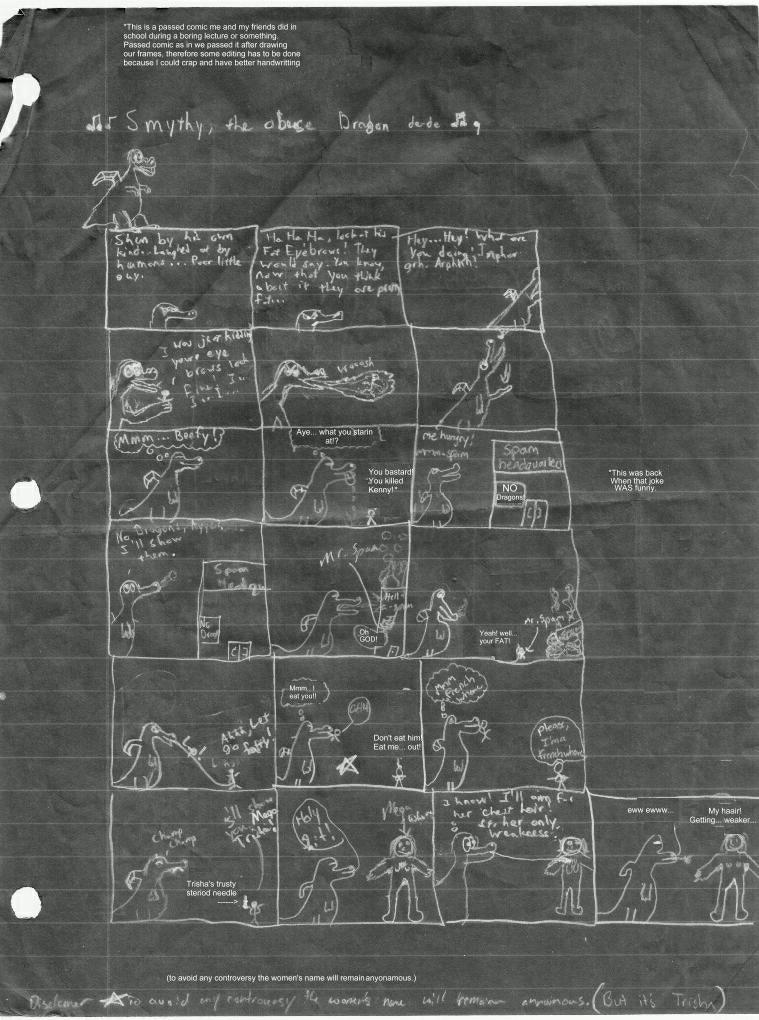 "This is a passed comic me and my friends did in
school during a boring lecture or something.
Passed comic as in we passed it after drawing
our frames, therefore some editing has to be done
because I could crap and have better handwritting
Smythy, the obese Dragon de-de
Shun by his own
kind... Laughed at by
humans... Poor little
guy.
Ha Ha Ha, look at his
Fat Eyebrows! They
would say. You know,
now that you think
about it they are
fat...
Hey...Hey! What are
you doing!
grh.
I was just kidding
your eye
brows look
fine! I...
I...I...
Woosh
Mmm... Beefy!
Aye... what you starin
at!?
You bastard!
You killed
Kenny!*
me hungry!
mmm-spam
Spam
headquarters
NO
Dragons
"This was back
When that joke
WAS funny.
No Dragons,
I'll show
them.
Spam
No
Mr. Spam
Oh
GOD!
Yeah! well...
your FAT!
Mr. Spam
Ahhh, Let
go fatty!
Mmm.. I
eat you!!
Don't eat him!
Eat me... out!
Mmm
French
whore
Please,
I'm a
french whore
Chomp
Chomp
I'll show
you.
Mega
Trisha!
Trisha's trusty
steriod needle
------>
Holy
Mega
Trisha
I know! I'll aim for
her chest hair
its her only
weakness!
eww ewww...
My haair!
Getting... weaker...
(to avoid any controversy the women's name will remain anyonamous.)
Disclaimer to avoid any controversy the women's name will remain anonimous. (But it's Trisha)